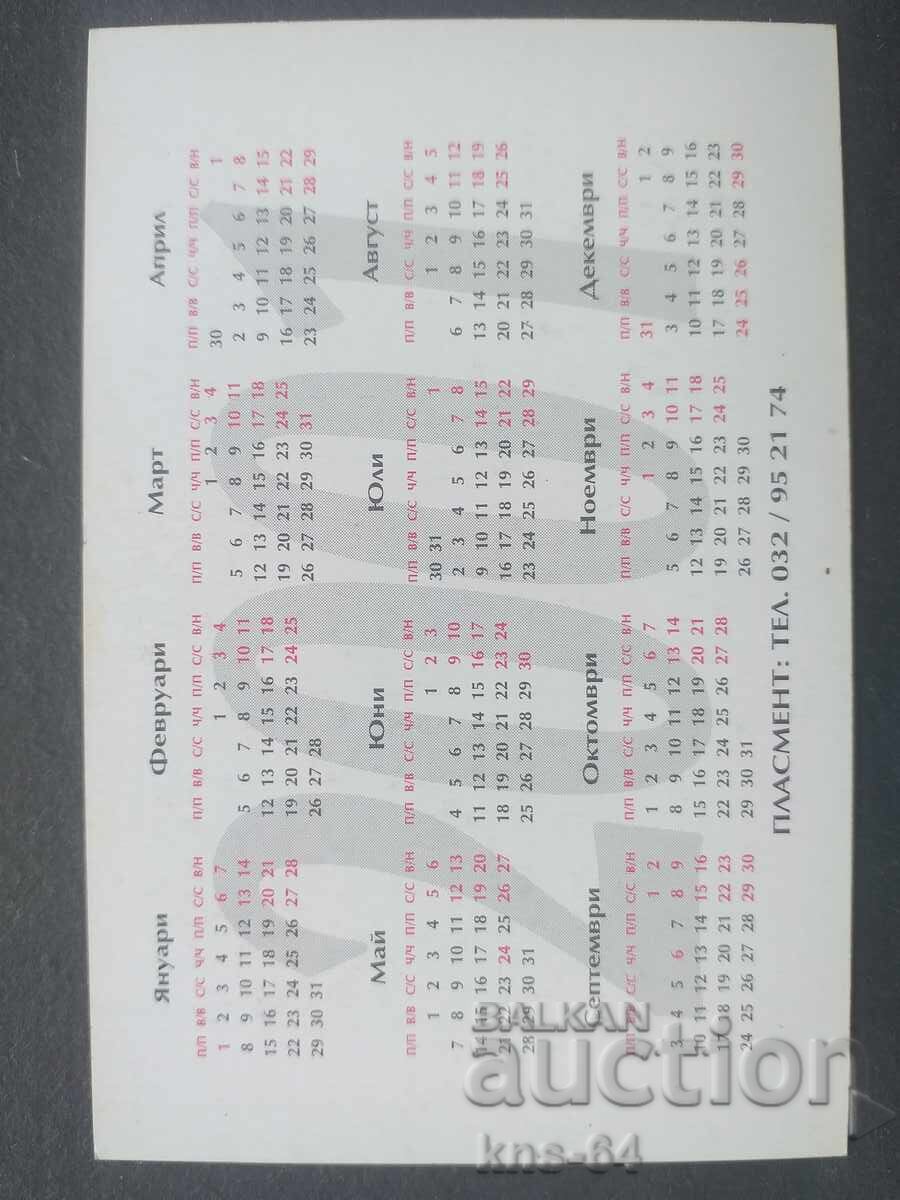 Януари
П/П В/В С/С Ч/Ч П/П С/С В/Н
1 2 3 4 5 6 7
8 9 10 11 12 13 14
15 16 17 18 19 20 21
22 23 24 25 26 27 28
29 30 31
Февруари
П/П В/В С/С Ч/Ч П/П С/С В/Н
1 2 3 4
5 6 7 8 9 10 11
12 13 14 15 16 17 18
19 20 21 22 23 24 25
26 27 28
Март
П/П В/В С/С Ч/Ч П/П С/С В/Н
1 2 3 4
5 6 7 8 9 10 11
12 13 14 15 16 17 18
19 20 21 22 23 24 25
26 27 28 29 30 31
Април
П/П В/В С/С Ч/Ч П/П С/С В/Н
30 1
2 3 4 5 6 7 8
9 10 11 12 13 14 15
16 17 18 19 20 21 22
23 24 25 26 27 28 29
Май
П/П В/В С/С Ч/Ч П/П С/С В/Н
1 2 3 4 5 6
7 8 9 10 11 12 13
14 15 16 17 18 19 20
21 22 23 24 25 26 27
28 29 30 31
Юни
П/П В/В С/С Ч/Ч П/П С/С В/Н
1 2 3
4 5 6 7 8 9 10
11 12 13 14 15 16 17
18 19 20 21 22 23 24
25 26 27 28 29 30
Юли
П/П В/В С/С Ч/Ч П/П С/С В/Н
30 31 1
2 3 4 5 6 7 8
9 10 11 12 13 14 15
16 17 18 19 20 21 22
23 24 25 26 27 28 29
Август
П/П В/В С/С Ч/Ч П/П С/С В/Н
1 2 3 4 5
6 7 8 9 10 11 12
13 14 15 16 17 18 19
20 21 22 23 24 25 26
27 28 29 30 31
Септември
П/П В/В С/С Ч/Ч П/П С/С В/Н
1 2
3 4 5 6 7 8 9
10 11 12 13 14 15 16
17 18 19 20 21 22 23
24 25 26 27 28 29 30
Октомври
П/П В/В С/С Ч/Ч П/П С/С В/Н
1 2 3 4 5 6 7
8 9 10 11 12 13 14
15 16 17 18 19 20 21
22 23 24 25 26 27 28
29 30 31
Ноември
П/П В/В С/С Ч/Ч П/П С/С В/Н
1 2 3 4
5 6 7 8 9 10 11
12 13 14 15 16 17 18
19 20 21 22 23 24 25
26 27 28 29 30
Декември
П/П В/В С/С Ч/Ч П/П С/С В/Н
31 1 2
3 4 5 6 7 8 9
10 11 12 13 14 15 16
17 18 19 20 21 22 23
24 25 26 27 28 29 30
2001
ПЛАСМЕНТ: ТЕЛ. 032 / 95 21 74
BALKAN
auction
kns-64